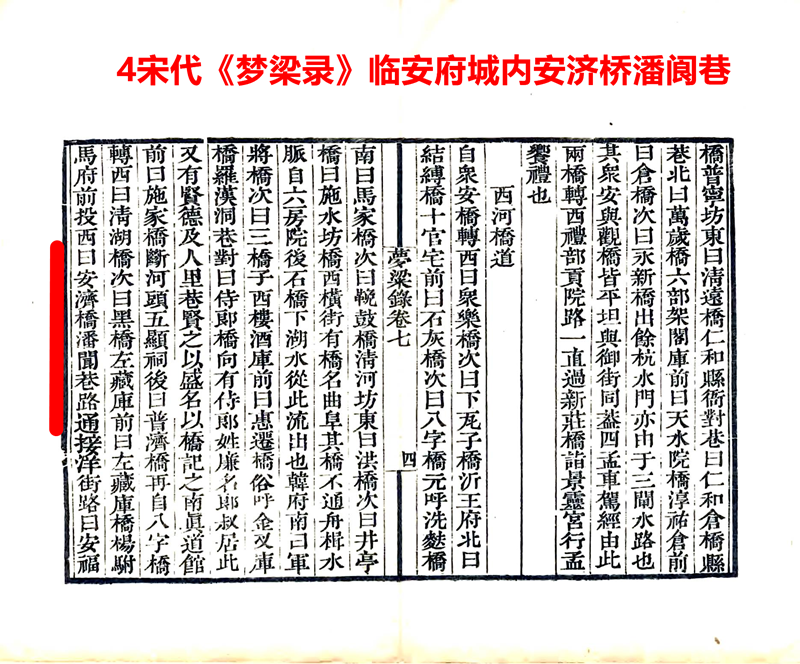 4宋代《梦梁录》临安府城内安济桥潘阆巷
橋普寧坊東曰清遠橋仁和縣衙對巷曰仁和倉橋縣
巷北曰萬歲橋六部架閣庫前曰天水院橋淳祐倉前
曰倉橋次曰永新橋出餘杭水門亦由于三閘水路也
其衆安與觀橋皆平坦與御街同蓋四孟車駕經由此
兩橋轉西禮部貢院路一直過新莊橋詣景靈宮行孟
饗禮也
西河橋道
自衆安橋轉西曰衆樂橋次曰下瓦子橋沂王府北曰
結縛橋十官宅前曰石灰橋次曰八字橋元呼洗麩橋
夢粱錄卷七
四
南曰馬家橋次曰鞔鼓橋清河坊東曰洪橋次曰井亭
橋曰施水坊橋西橫街有橋名曲阜其橋不通舟楫水
脈自六房院後石橋下湖水從此流出也韓府南曰軍
將橋次曰三橋子西樓酒庫前曰惠遷橋俗呼金叉庫
橋羅漢洞巷對曰侍郎橋向有侍郎姓廉名郎叔居此
又有賢德及人里巷賢之以盛名以橋記之南眞道館
前曰施家橋斷河頭五顯祠後曰普濟橋再自八字橋
轉西曰清湖橋次曰黑橋左藏庫前曰左藏庫橋楊駙
馬府前投西曰安濟橋潘閬巷路通接洋街路曰安福